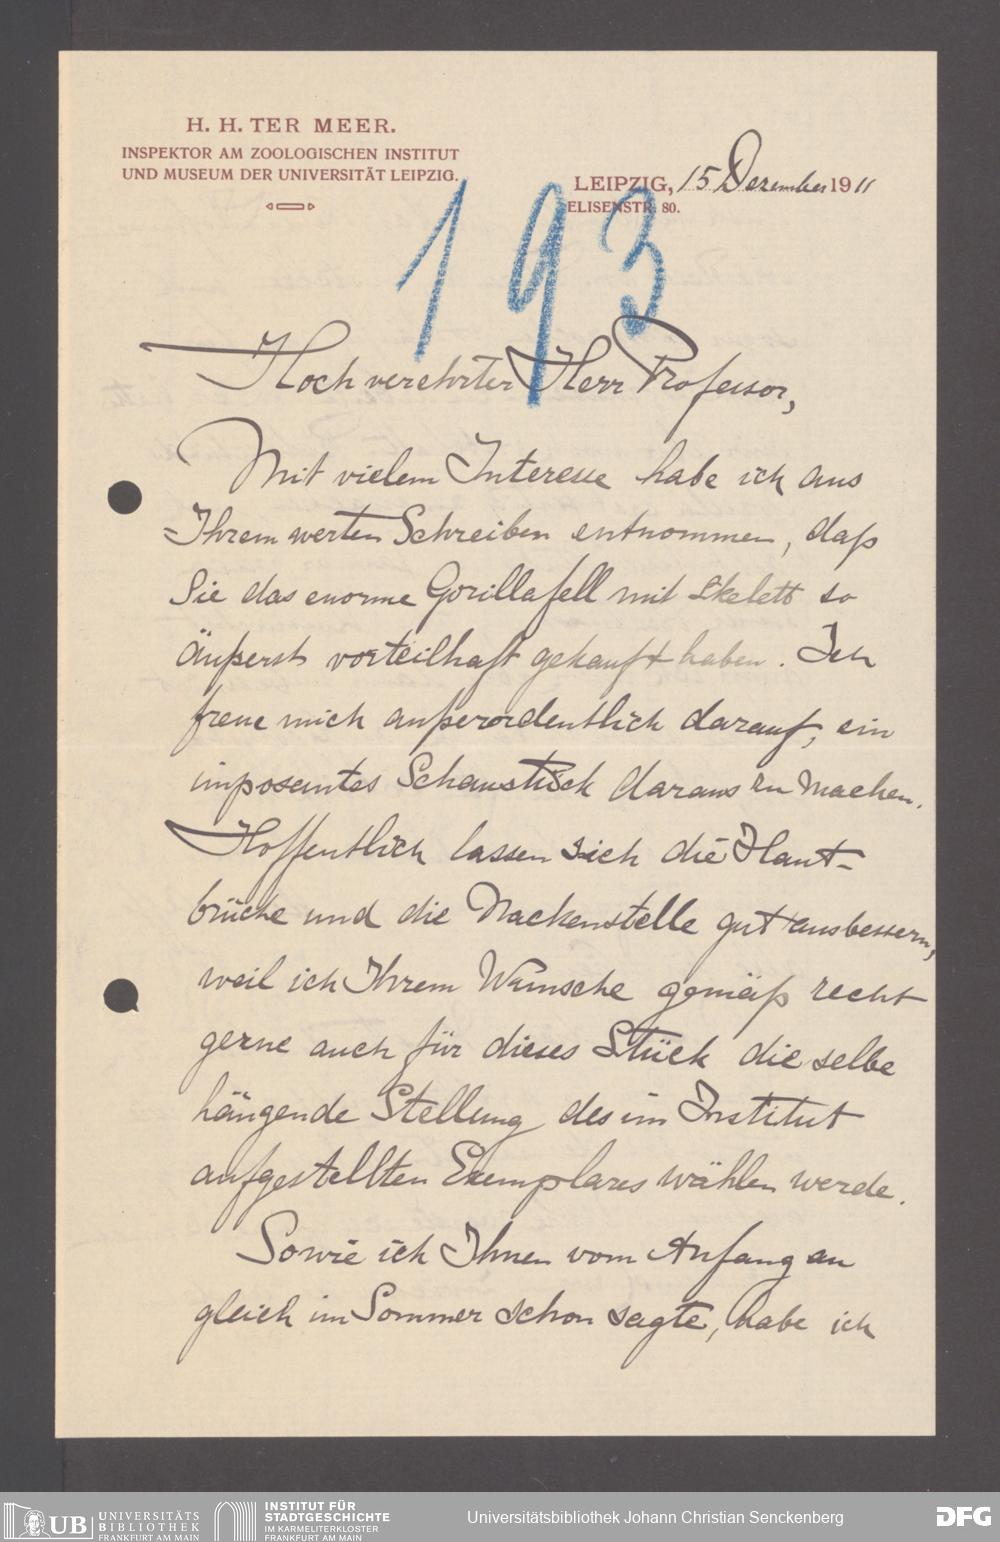 H. H. TER MEER.
INSPEKTOR AM ZOOLOGISCHEN INSTITUT
UND MUSEUM DER UNIVERSITÄT LEIPZIG.
LEIPZIG, 15 Dezember 1911
ELISENSTR. 80.
193
Hochverehrter Herr Professor,
Mit vielem Interesse habe ich aus
Ihrem werten Schreiben entnommen, daß
Sie das enorme Gorillafell mit Skelett so
äußerst vorteilhaft gekauft haben. Ich
freue mich außerordentlich darauf, ein
imposantes Schaustück daraus zu machen.
Hoffentlich lassen sich die Haut-
brüche und die Nackenstelle gut ausbessern,
weil ich Ihrem Wunsche gemäß recht
gerne auch für dieses Stück die selbe
hängende Stellung des im Institut
aufgestellten Exemplares wählen werde.
Sowie ich Ihnen vom Anfang an
gleich im Sommer schon sagte, habe ich
UB UNIVERSITÄTS
BIBLIOTHEK
FRANKFURT AM MAIN
INSTITUT FÜR
STADTGESCHICHTE
IM KARMELITERKLOSTER
FRANKFURT AM MAIN
Universitätsbibliothek Johann Christian Senckenberg
DFG